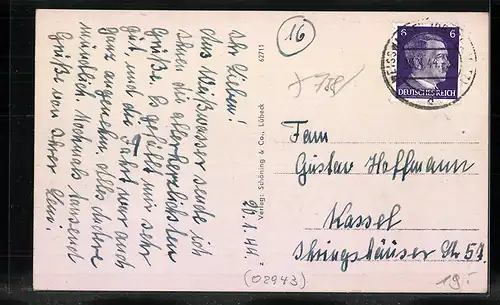 Ihr Lieben!
Aus Weißwasser sende ich
Ihnen die allerherzlichsten
Grüße. Es gefällt mir sehr
gut und die Fahrt war auch
ganz angenehm. Alles andere
mündlich. Nochmals tausend
Grüße von Ihrer
20.1.44.
2 Verlag: Schöning & Co., Lübeck 62711
16
6 6
DEUTSCHES REICH
Fam
Gustav Hoffmann
Kassel
Ihringshäuser Str 59
(02943)
19.-